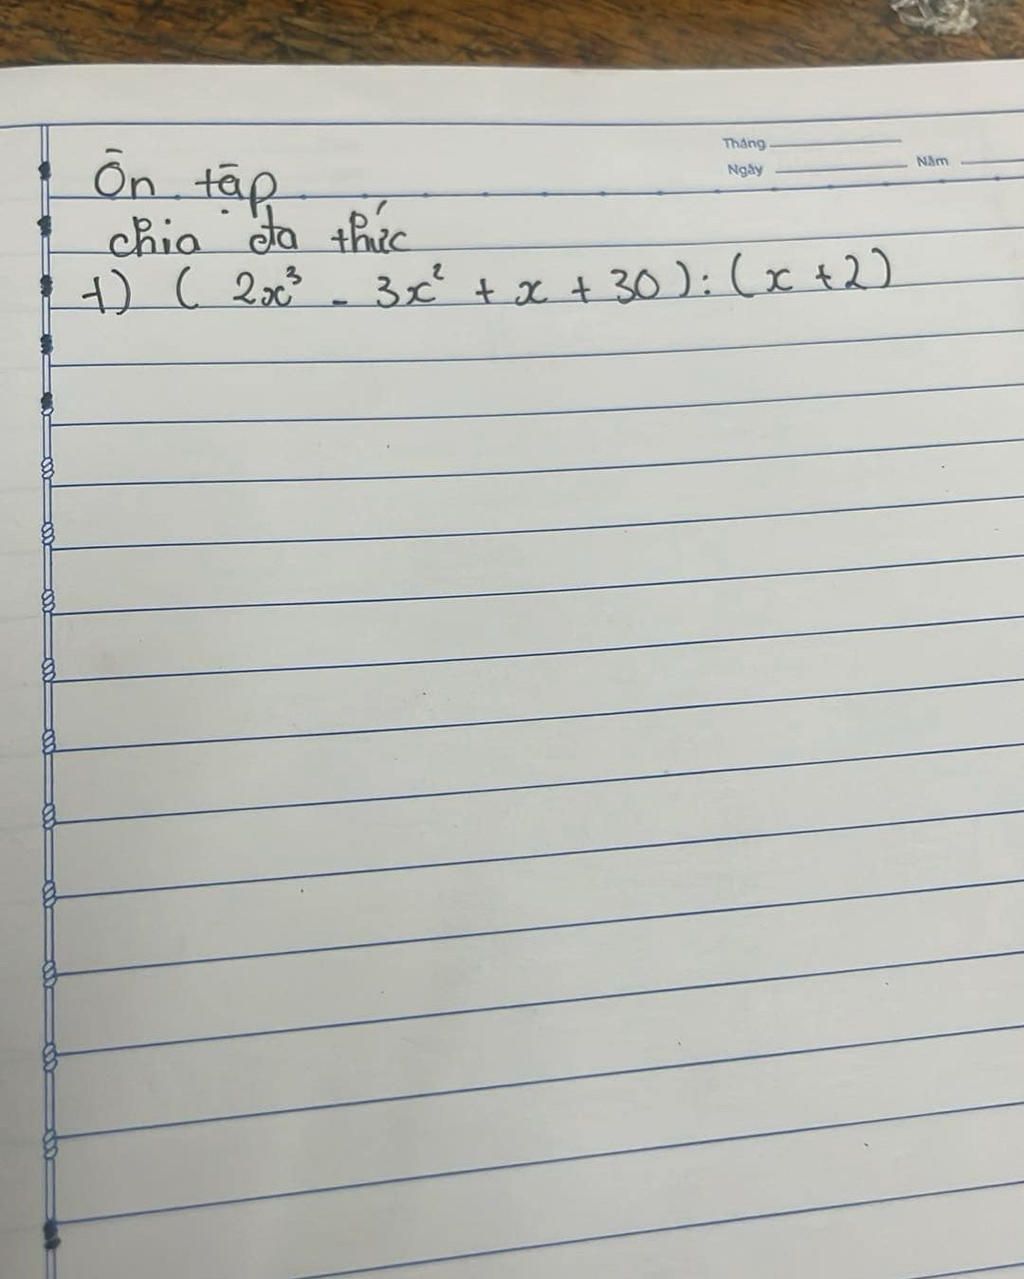 Tháng
Ngày Năm
Ôn tập
chia đa thức
1) ( 2x³ - 3x² + x + 30 ) : ( x + 2 )